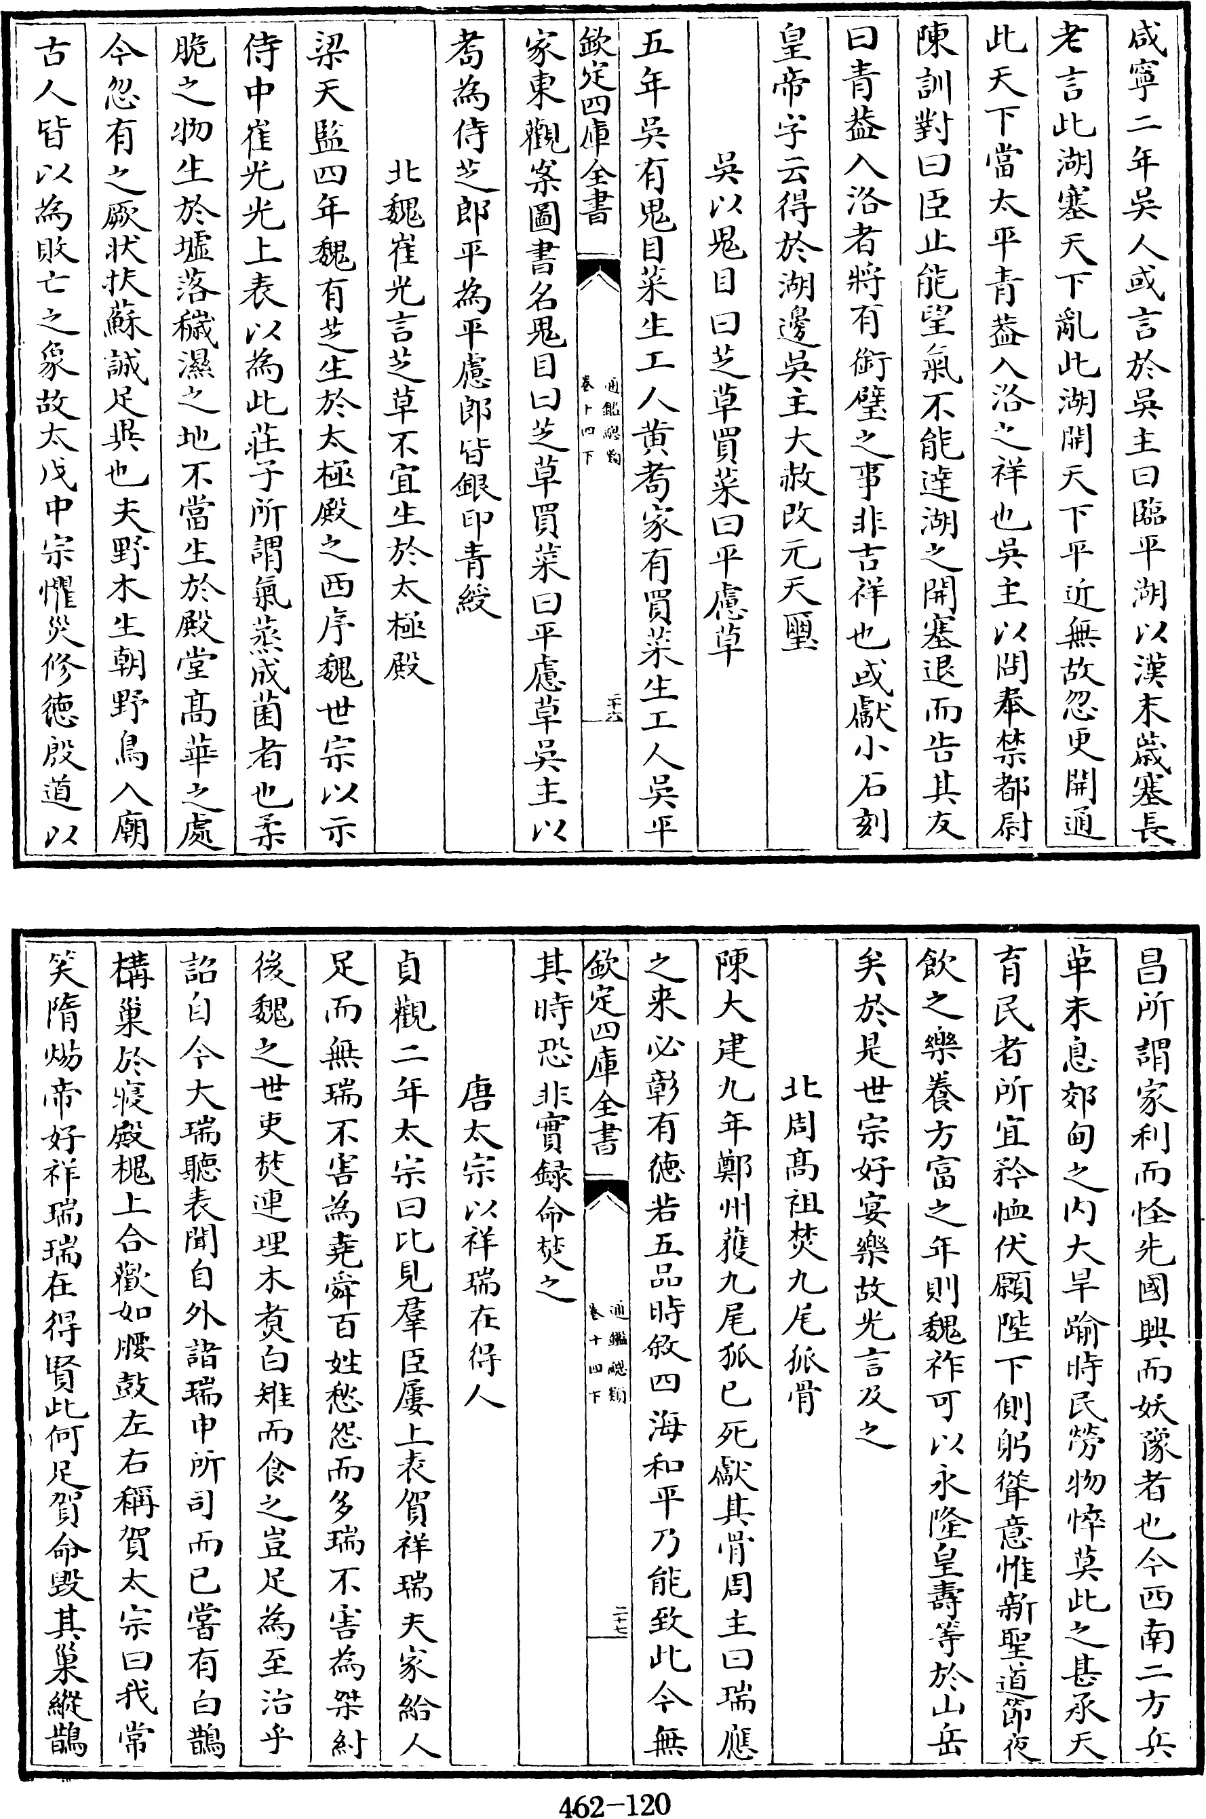 咸寧二年吳人或言於吳主曰臨平湖以漢末薉塞長
老言此湖塞天下亂此湖開天下平近無故忽更開通
此天下當太平青葢入洛之祥也吳主以問奉禁都尉
陳訓對曰臣止能望氣不能逹湖之開塞退而告其友
曰青葢入洛者將有銜璧之事非吉祥也或獻小石刻
皇帝字云得於湖邊吳主大赦改元天璽
吳以鬼目曰芝草買菜曰平慮草
五年吳有鬼目菜生工人黃耇家有買菜生工人吳平
欽定四庫全書
通鑑總類
卷十四下
二十六
家東觀案圖書名鬼目曰芝草買菜曰平慮草吳主以
耇為侍芝郎平為平慮郎皆銀印青綬
北魏崔光言芝草不宜生於太極殿
梁天監四年魏有芝生於太極殿之西序魏世宗以示
侍中崔光光上表以為此莊子所謂氣蒸成菌者也柔
脆之物生於墟落穢濕之地不當生於殿堂髙華之處
今忽有之厥狀扶蘇誠足異也夫野木生朝野鳥入廟
古人皆以為敗亡之象故太戊中宗懼災修德殷道以
昌所謂家利而怪先國興而妖豫者也今西南二方兵
革未息郊甸之内大旱踰時民勞物悴莫此之甚承天
育民者所宜矜恤伏願陛下側躬聳意惟新聖道節夜
飲之樂養方富之年則魏祚可以永隆皇壽等於山岳
矣於是世宗好宴樂故光言及之
北周髙祖焚九尾狐骨
陳大建九年鄭州獲九尾狐已死獻其骨周主曰瑞應
之來必彰有德若五品時敘四海和平乃能致此今無
欽定四庫全書
通鑑總類
卷十四下
二十七
其時恐非實録命焚之
唐太宗以祥瑞在得人
貞觀二年太宗曰比見羣臣屢上表賀祥瑞夫家給人
足而無瑞不害為堯舜百姓愁怨而多瑞不害為桀紂
後魏之世吏焚連理木煑白雉而食之豈足為至治乎
詔自今大瑞聽表聞自外諸瑞申所司而已嘗有白鵲
構巢於寢殿槐上合歡如腰鼓左右稱賀太宗曰我常
笑隋煬帝好祥瑞瑞在得賢此何足賀命毀其巢縱鵲
462-120